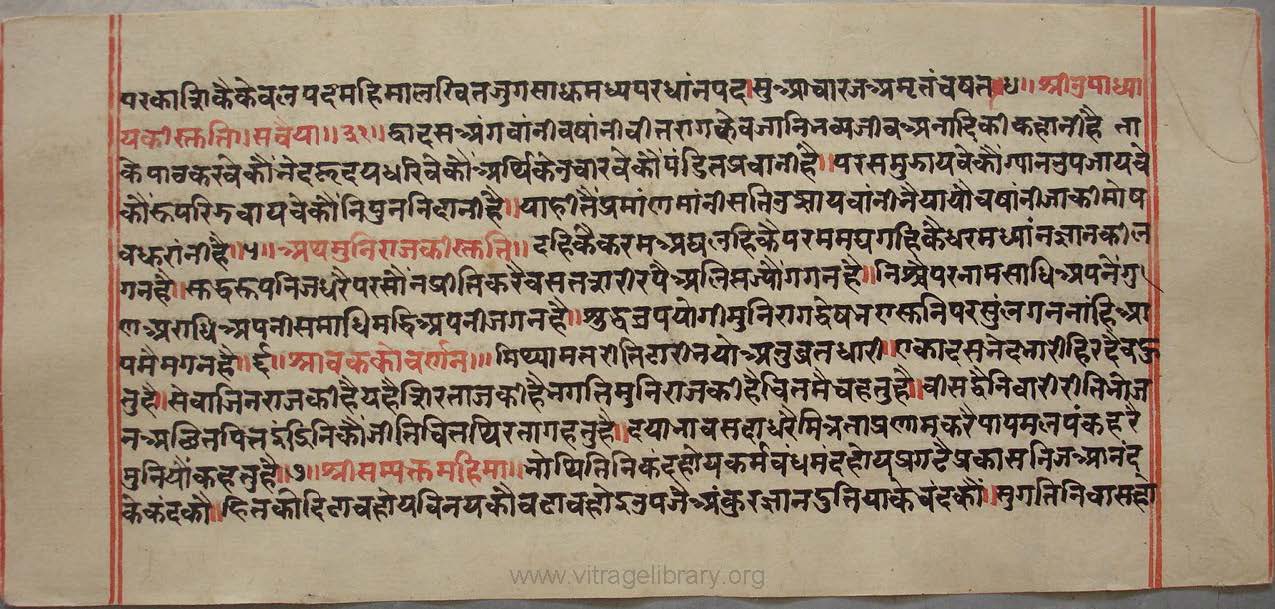 परकाशिकैकेवलपदमहिमालखिनजुगसाधमध्यपरधांनपद।सुआचारजअमृतंचषत ४॥श्रीउपाध्या
यकीस्तुति॥सवैया॥३१॥द्वादसअंगवांनीवषांनीवीतरागकेवजानिनव्यजीवअनादिकीकहानीहै ता
केपावकरवेकौंनेदहृदयधरिवेकौंअर्थिकेउचारवेकौंपंडितप्रवानीहै॥परसमुझायवेकौंग्यानउपजायवे
कौंरूपरिझवायवेकौंनिपुननिदानीहै॥याहीतैंप्रमांणमांनीसतिउवझायवांनीनैयायौवषांनीजाकीमोष
वधूरांनीहै॥५॥अथमुनिराजकीस्तुति॥दहिकैकरमअघलहिकैपरममघगहिकैधरमध्यांनज्ञानकील
गनहै॥सुद्धरूपनिजधरैपरसौंनप्रीतिकरैवसतशरीरपैअलिसज्यौंगगनहै॥निश्चैपरनामसाधिअपनेगु
णअराधिअपनीसमाधिमद्धिअपनीजगनहै॥सुद्धउपयोगीमुनिरागद्वेषनएस्तुनिपरसुंलगननांहिआ
पमैमगनहै॥६॥श्रावककोवर्णन॥॥मिथ्यामतरीतिटारीनयोअनुव्रतधारी॥एकादसनेदनारीहिरदैवहु
नुहै॥सेवाजिनराजकीहैयहैशिरताजकीहैनगतिमुनिराजकीहैचितमैचहनुहै॥वीसद्वैनिवारीरीतिनोज
नअछितपितइंद्रिनिकौंजीतिचितथिरतागहनुहै॥दयानावसदाधरैमित्रताप्रणामकरैपापमलपंकहरै
मुनियौंकहनुहै॥७॥श्रीसम्यक्तमहिमा॥नोथितिनिकंदहोयकर्मवंधमंदहोयप्रगटैप्रकासनिजआनंद
केकंदकौ॥हितकौदिढावहोयविनयकौवढावहोइउपजैअंकुरज्ञानदुतियाकेचंदकौं॥सुगतिनिवासहो
www.vitragelibrary.org